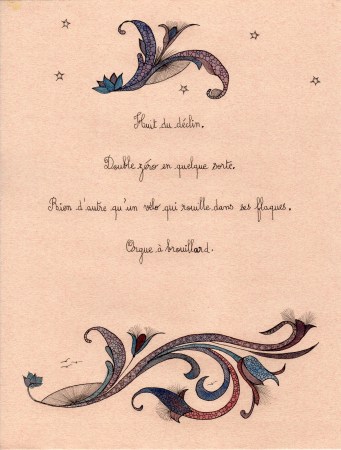 Huit du déclin.
Double zéro en quelque sorte.
Rien d'autre qu'un vélo qui rouille dans ses flaques.
Orgue à brouillard.